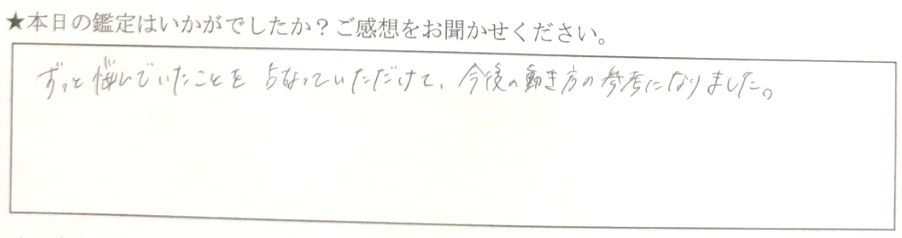 ★本日の鑑定はいかがでしたか？ご感想をお聞かせください。
ずっと悩んでいたことを占なっていただけて、今後の動き方の参考になりました。